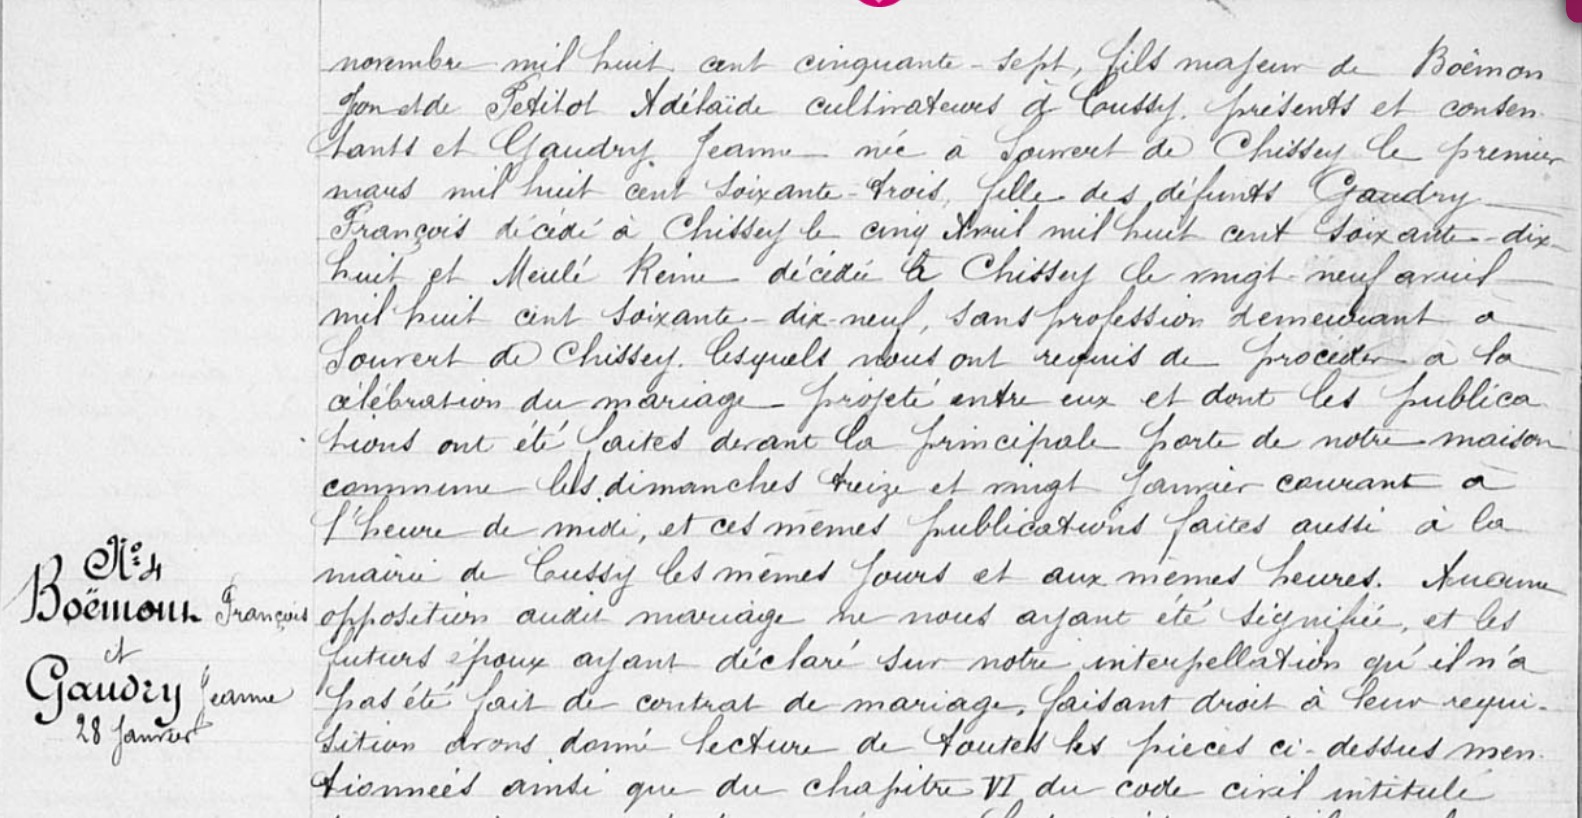 novembre mil huit cent cinquante-sept, fils majeur de Boëmon
et de Petitot Adélaïde cultivateurs à Cussy, présents et consen
tants et Gaudry Jeanne née à Souvert de Chissey le premier
mars mil huit cent soixante-trois, fille des défunts Gaudry
François décédé à Chissey le cinq Avril mil huit cent soixante-dix-
huit et Meulé Reine décédée à Chissey le vingt-neuf avril
mil huit cent soixante-dix-neuf, sans profession demeurant à
Souvert de Chissey. lesquels nous ont requis de procéder à la
célébration du mariage projeté entre eux et dont les publica
tions ont été faites devant la principale porte de notre maison
commune les dimanches treize et vingt Janvier courant à
l'heure de midi, et ces mêmes publications faites aussi à la
mairie de Cussy les mêmes jours et aux mêmes heures. Aucune
N° 4
Boëmont François
et
Gaudry Jeanne
28 Janvier
opposition audit mariage ne nous ayant été signifiée, et les
futurs époux ayant déclaré sur notre interpellation qu'il n'a
pas été fait de contrat de mariage, faisant droit à leur requi-
sition avons donné lecture de toutes les pièces ci-dessus men-
tionnées ainsi que du chapitre VI du code civil intitulé